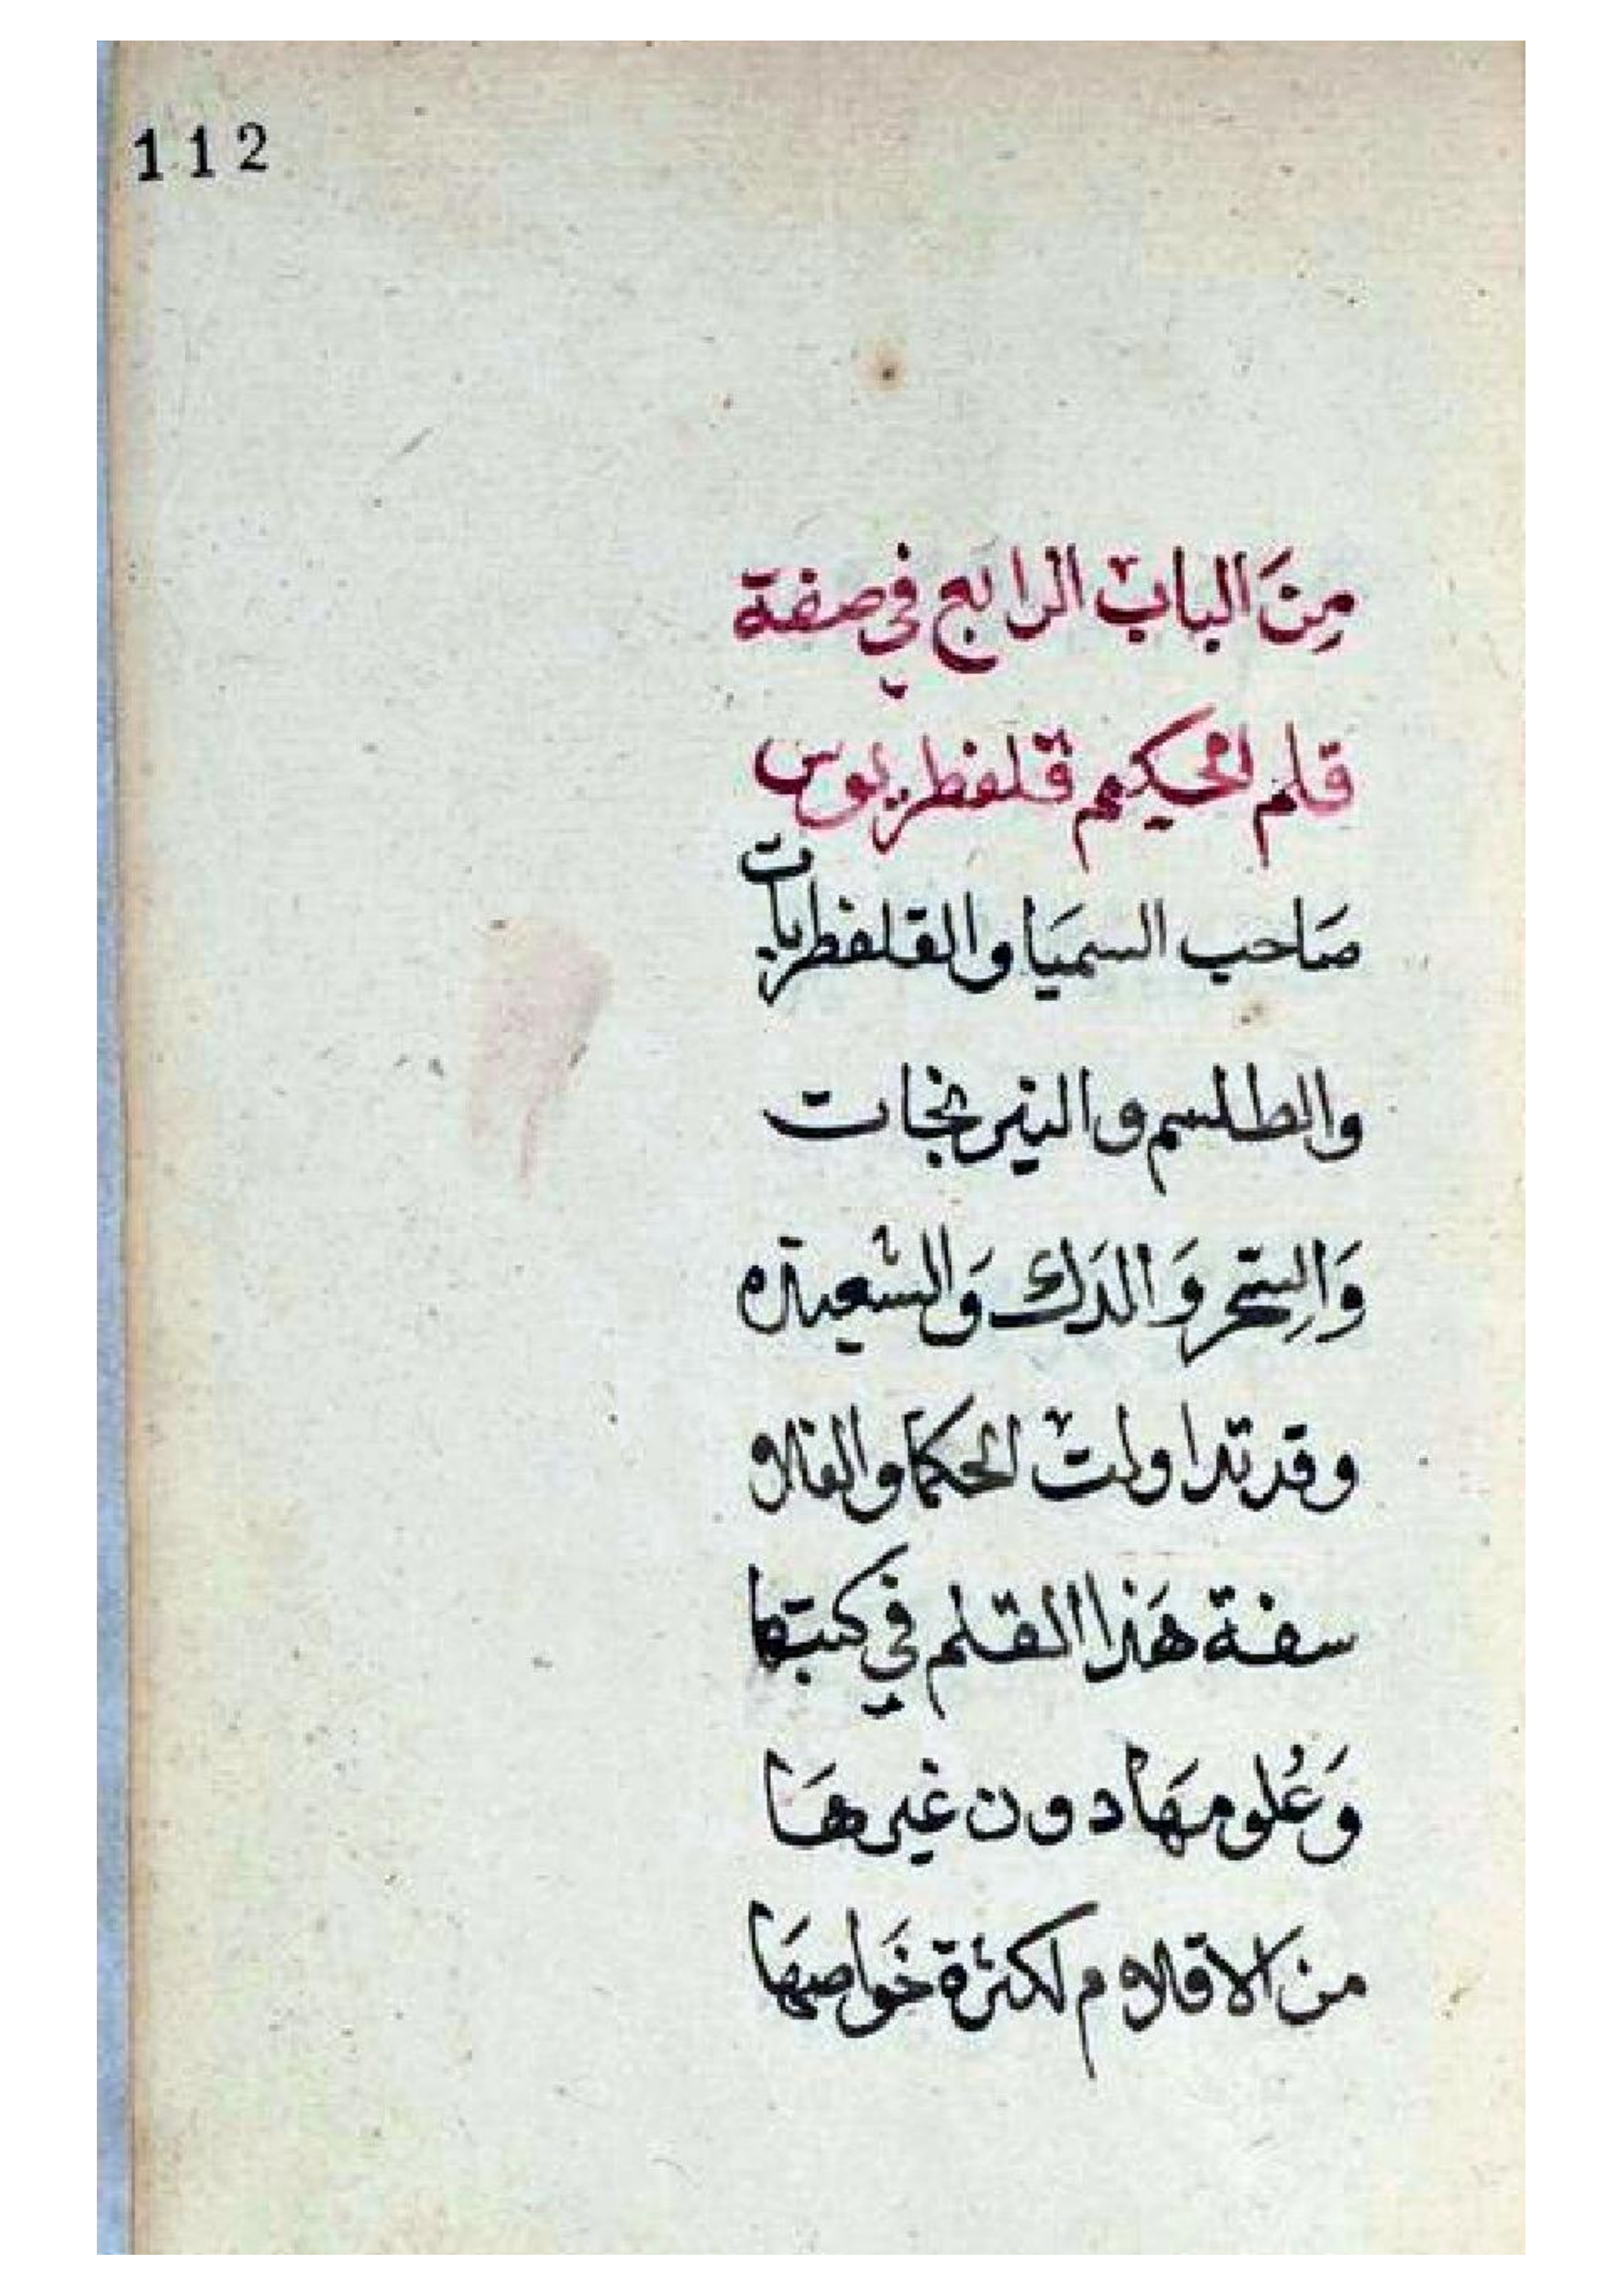 112
مِنَ الباب الرابع في صفة
قلم الحكيم قلفطريوس
صَاحب السميَا والقلفطريات
والطلسم والنيرنجات
وَالِسّحر وَالدَك وَالشعبذه
وقد تداولت الحكما والفلا
سفة هَذا القلم في كتبها
وَعُلومهَا دون غيرهَا
من الاقلام لكثرة خَواصهَا